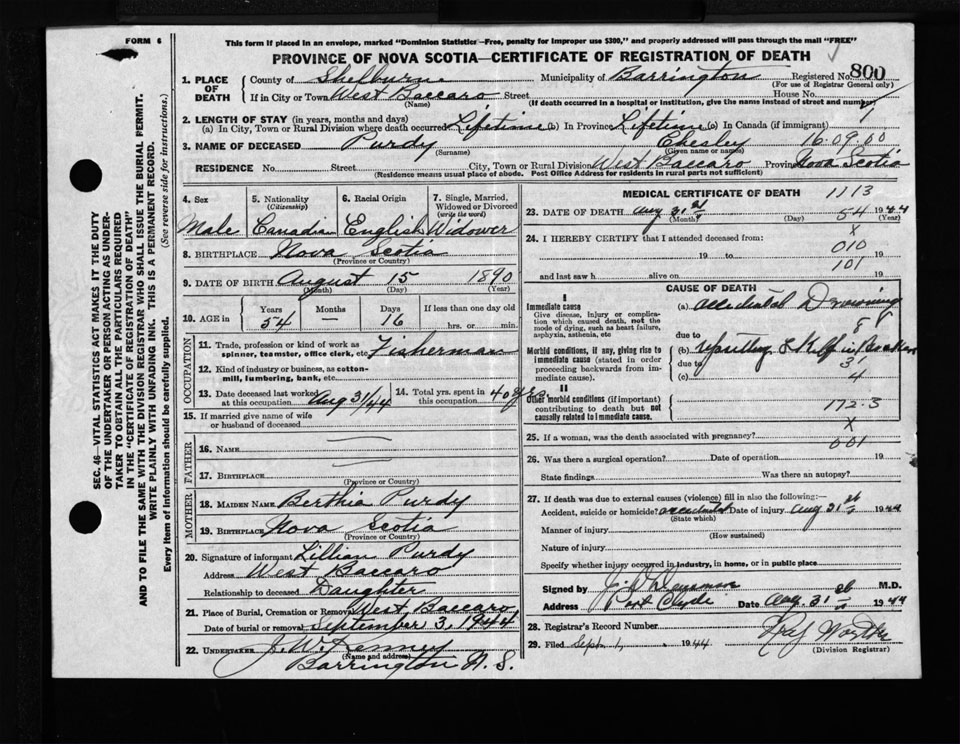 FORM 6
This form if placed in an envelope, marked "Dominion Statistics—Free, penalty for improper use $300," and properly addressed will pass through the mail "FREE"
PROVINCE OF NOVA SCOTIA—CERTIFICATE OF REGISTRATION OF DEATH
SEC. 46—VITAL STATISTICS ACT MAKES IT THE DUTY
OF THE UNDERTAKER OR PERSON ACTING AS UNDER-
TAKER TO OBTAIN ALL THE PARTICULARS REQUIRED
IN THE "CERTIFICATE OF REGISTRATION OF DEATH"
AND TO FILE THE SAME WITH THE DIVISION REGISTRAR WHO SHALL ISSUE THE BURIAL PERMIT.
WRITE PLAINLY WITH UNFADING INK. THIS IS A PERMANENT RECORD.
Every item of information should be carefully supplied. (See reverse side for instructions.)
1. PLACE OF DEATH County of Shelburne Municipality of Barrington Registered No. 800
(For use of Registrar General only)
If in City or Town West Baccaro Street House No.
(Name) (If death occurred in a hospital or institution, give the name instead of street and number)
2. LENGTH OF STAY (in years, months and days)
(a) In City, Town or Rural Division where death occurred Lifetime (b) In Province Lifetime (c) In Canada (if immigrant)
3. NAME OF DECEASED Purdy Chesley 16.09.00
(Surname) (Given name or names)
RESIDENCE No. Street City, Town or Rural Division West Baccaro Province Nova Scotia
(Residence means usual place of abode. Post Office Address for residents in rural parts not sufficient)
4. Sex 5. Nationality (Citizenship) 6. Racial Origin 7. Single, Married, Widowed or Divorced (write the word)
Male Canadian English Widower
8. BIRTHPLACE Nova Scotia
(Province or Country)
9. DATE OF BIRTH August 15 1890
(Month) (Day) (Year)
10. AGE in Years Months Days If less than one day old
54 — 16 hrs. or min.
OCCUPATION
11. Trade, profession or kind of work as spinner, teamster, office clerk, etc. Fisherman
12. Kind of industry or business, as cotton-mill, lumbering, bank, etc.
13. Date deceased last worked at this occupation Aug 31/44 14. Total yrs. spent in this occupation 40 yrs.
15. If married give name of wife or husband of deceased
FATHER
16. NAME
17. BIRTHPLACE
(Province or Country)
MOTHER
18. MAIDEN NAME Berthia Purdy
19. BIRTHPLACE Nova Scotia
(Province or Country)
20. Signature of informant Lillian Purdy
Address West Baccaro
Relationship to deceased Daughter
21. Place of Burial, Cremation or Removal West Baccaro
Date of burial or removal September 3, 1944
22. UNDERTAKER J. W. Kenney
(Name and address)
Barrington N. S.
MEDICAL CERTIFICATE OF DEATH 1113
23. DATE OF DEATH Aug 31st 54 1944
(Month) (Day) (Year)
24. I HEREBY CERTIFY that I attended deceased from: X
19 to 010 19
and last saw h alive on 101 19
CAUSE OF DEATH
I
Immediate cause (a) accidental Drowning
Give disease, injury or complication which caused death, not the mode of dying, such as heart failure, asphyxia, asthenia, etc
due to
Morbid conditions, if any, giving rise to immediate cause (stated in order proceeding backwards from immediate cause). (b) upsetting
due to 3
(c) 4
II
Other morbid conditions (if important) contributing to death but not causally related to immediate cause. 172.3
X
25. If a woman, was the death associated with pregnancy? 001
26. Was there a surgical operation? Date of operation 19
State findings Was there an autopsy?
27. If death was due to external causes (violence) fill in also the following:—
Accident, suicide or homicide? accident Date of injury Aug 31st 1944
(State which)
Manner of injury
(How sustained)
Nature of injury
Specify whether injury occurred in industry, in home, or in public place
Signed by M.D.
Address Port Clyde Date Aug. 31st 1944
28. Registrar's Record Number
29. Filed Sept. 1, 1944
(Division Registrar)